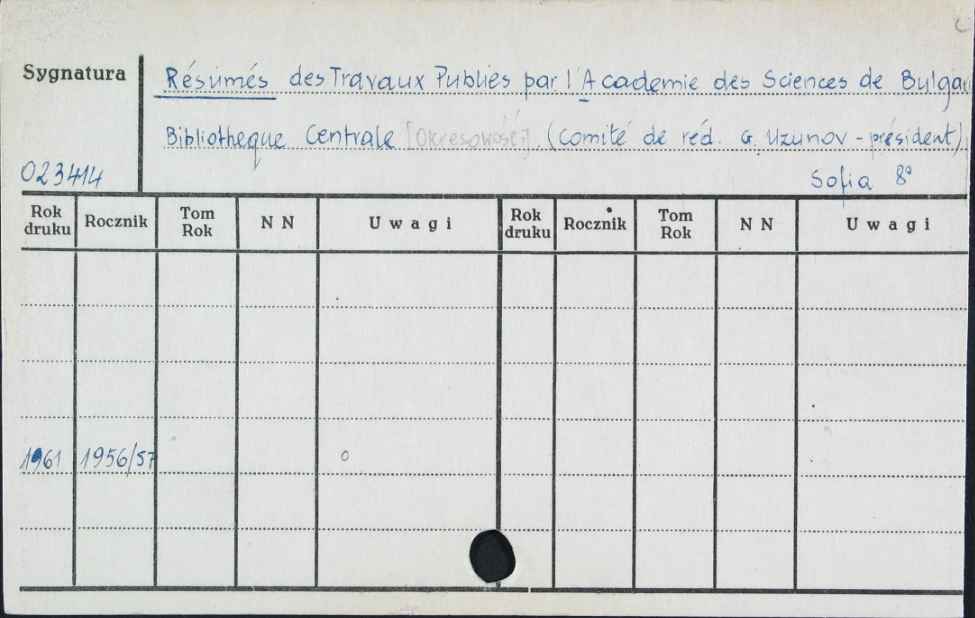 Sygnatura
Résumés des Travaux Publies par l'Academie des Sciences de Bulga
Bibliotheque Centrale [Okresowość] (Comité de réd. G. Uzunov - président)
023414
Sofia 8°
Rok druku Rocznik Tom Rok N N Uwagi Rok druku Rocznik Tom Rok N N Uwagi
1961 1956/57 o